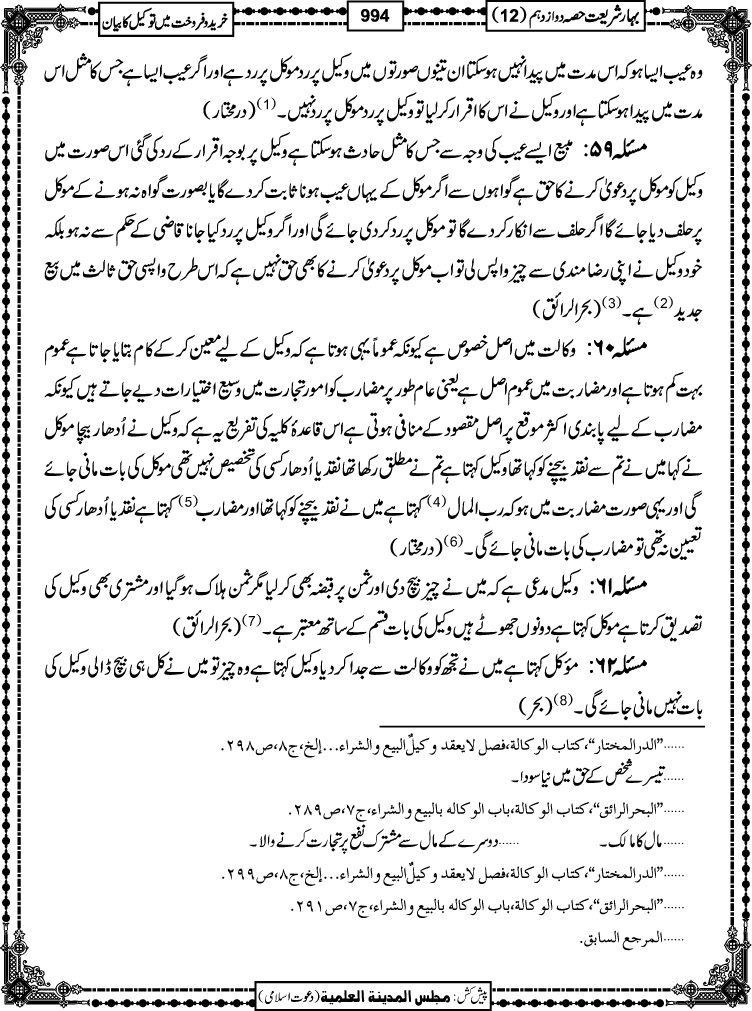 بہارشریعت حصہ دوازدہم (12)
994
خریدوفروخت میں توکیل کا بیان
وہ عیب ایسا ہو کہ اس مدت میں پیدا نہیں ہوسکتا ان تینوں صورتوں میں وکیل پر رد موکل پر رد ہے اور اگر عیب ایسا ہے جس کا مثل اس
مدت میں پیدا ہوسکتا ہے اور وکیل نے اس کا اقرار کرلیا تو وکیل پر رد موکل پر رد نہیں۔(1) (درمختار)
مسئلہ ۵۹: مبیع ایسے عیب کی وجہ سے جس کا مثل حادث ہوسکتا ہے وکیل پر بوجہ اقرار کے رد کی گئی اس صورت میں
وکیل کو موکل پر دعویٰ کرنے کا حق ہے گواہوں سے اگر موکل کے یہاں عیب ہونا ثابت کردے گا یا بصورت گواہ نہ ہونے کے موکل
پر حلف دیا جائے گا اگر حلف سے انکار کردے گا تو موکل پر رد کردی جائے گی اور اگر وکیل پر رد کیا جانا قاضی کے حکم سے نہ ہو بلکہ
خود وکیل نے اپنی رضامندی سے چیز واپس لی تو اب موکل پر دعویٰ کرنے کا بھی حق نہیں ہے کہ اس طرح واپسی حق ثالث میں بیع
جدید(2) ہے۔(3) (بحرالرائق)
مسئلہ ۶۰: وکالت میں اصل خصوص ہے کیونکہ عموماً یہی ہوتا ہے کہ وکیل کے لیے معین کرکے کام بتایا جاتا ہے عموم
بہت کم ہوتا ہے اور مضاربت میں عموم اصل ہے یعنی عام طور پر مضارب کو امور تجارت میں وسیع اختیارات دیے جاتے ہیں کیونکہ
مضارب کے لیے پابندی اکثر موقع پر اصل مقصود کے منافی ہوتی ہے اس قاعدۂ کلیہ کی تفریع یہ ہے کہ وکیل نے اُدھار بیچا موکل
نے کہا میں نے تم سے نقد بیچنے کو کہا تھا وکیل کہتا ہے تم نے مطلق رکھا تھا نقد یا اُدھار کسی کی تخصیص نہیں تھی موکل کی بات مانی جائے
گی اور یہی صورت مضاربت میں ہو کہ رب المال(4) کہتا ہے میں نے نقد بیچنے کو کہا تھا اور مضارب(5) کہتا ہے نقد یا اُدھار کسی کی
تعیین نہ تھی تو مضارب کی بات مانی جائے گی۔(6) (درمختار)
مسئلہ ۶۱: وکیل مدعی ہے کہ میں نے چیز بیچ دی اور ثمن پر قبضہ بھی کرلیا مگر ثمن ہلاک ہوگیا اور مشتری بھی وکیل کی
تصدیق کرتا ہے موکل کہتا ہے دونوں جھوٹے ہیں وکیل کی بات قسم کے ساتھ معتبر ہے۔(7) (بحرالرائق)
مسئلہ ۶۲: مؤکل کہتا ہے میں نے تجھ کو وکالت سے جدا کردیا وکیل کہتا ہے وہ چیز تو میں نے کل ہی بیچ ڈالی وکیل کی
بات نہیں مانی جائے گی۔(8) (بحر)
......"الدرالمختار"،کتاب الوکالة،فصل لایعقد وکیلُ البیع والشراء...إلخ،ج۸،ص۲۹۸.
......تیسرے شخص کے حق میں نیا سودا۔
......"البحرالرائق"،کتاب الوکالة،باب الوکاله بالبیع والشراء،ج۷،ص۲۸۹.
......مال کا مالک۔ ......دوسرے کے مال سے مشترک نفع پر تجارت کرنے والا۔
......"الدرالمختار"،کتاب الوکالة،فصل لایعقد وکیلُ البیع والشراء...إلخ،ج۸،ص۲۹۹.
......"البحرالرائق"،کتاب الوکالة،باب الوکاله بالبیع والشراء،ج۷،ص۲۹۱.
......المرجع السابق.
پیش کش: مجلس المدینة العلمیة (دعوت اسلامی)